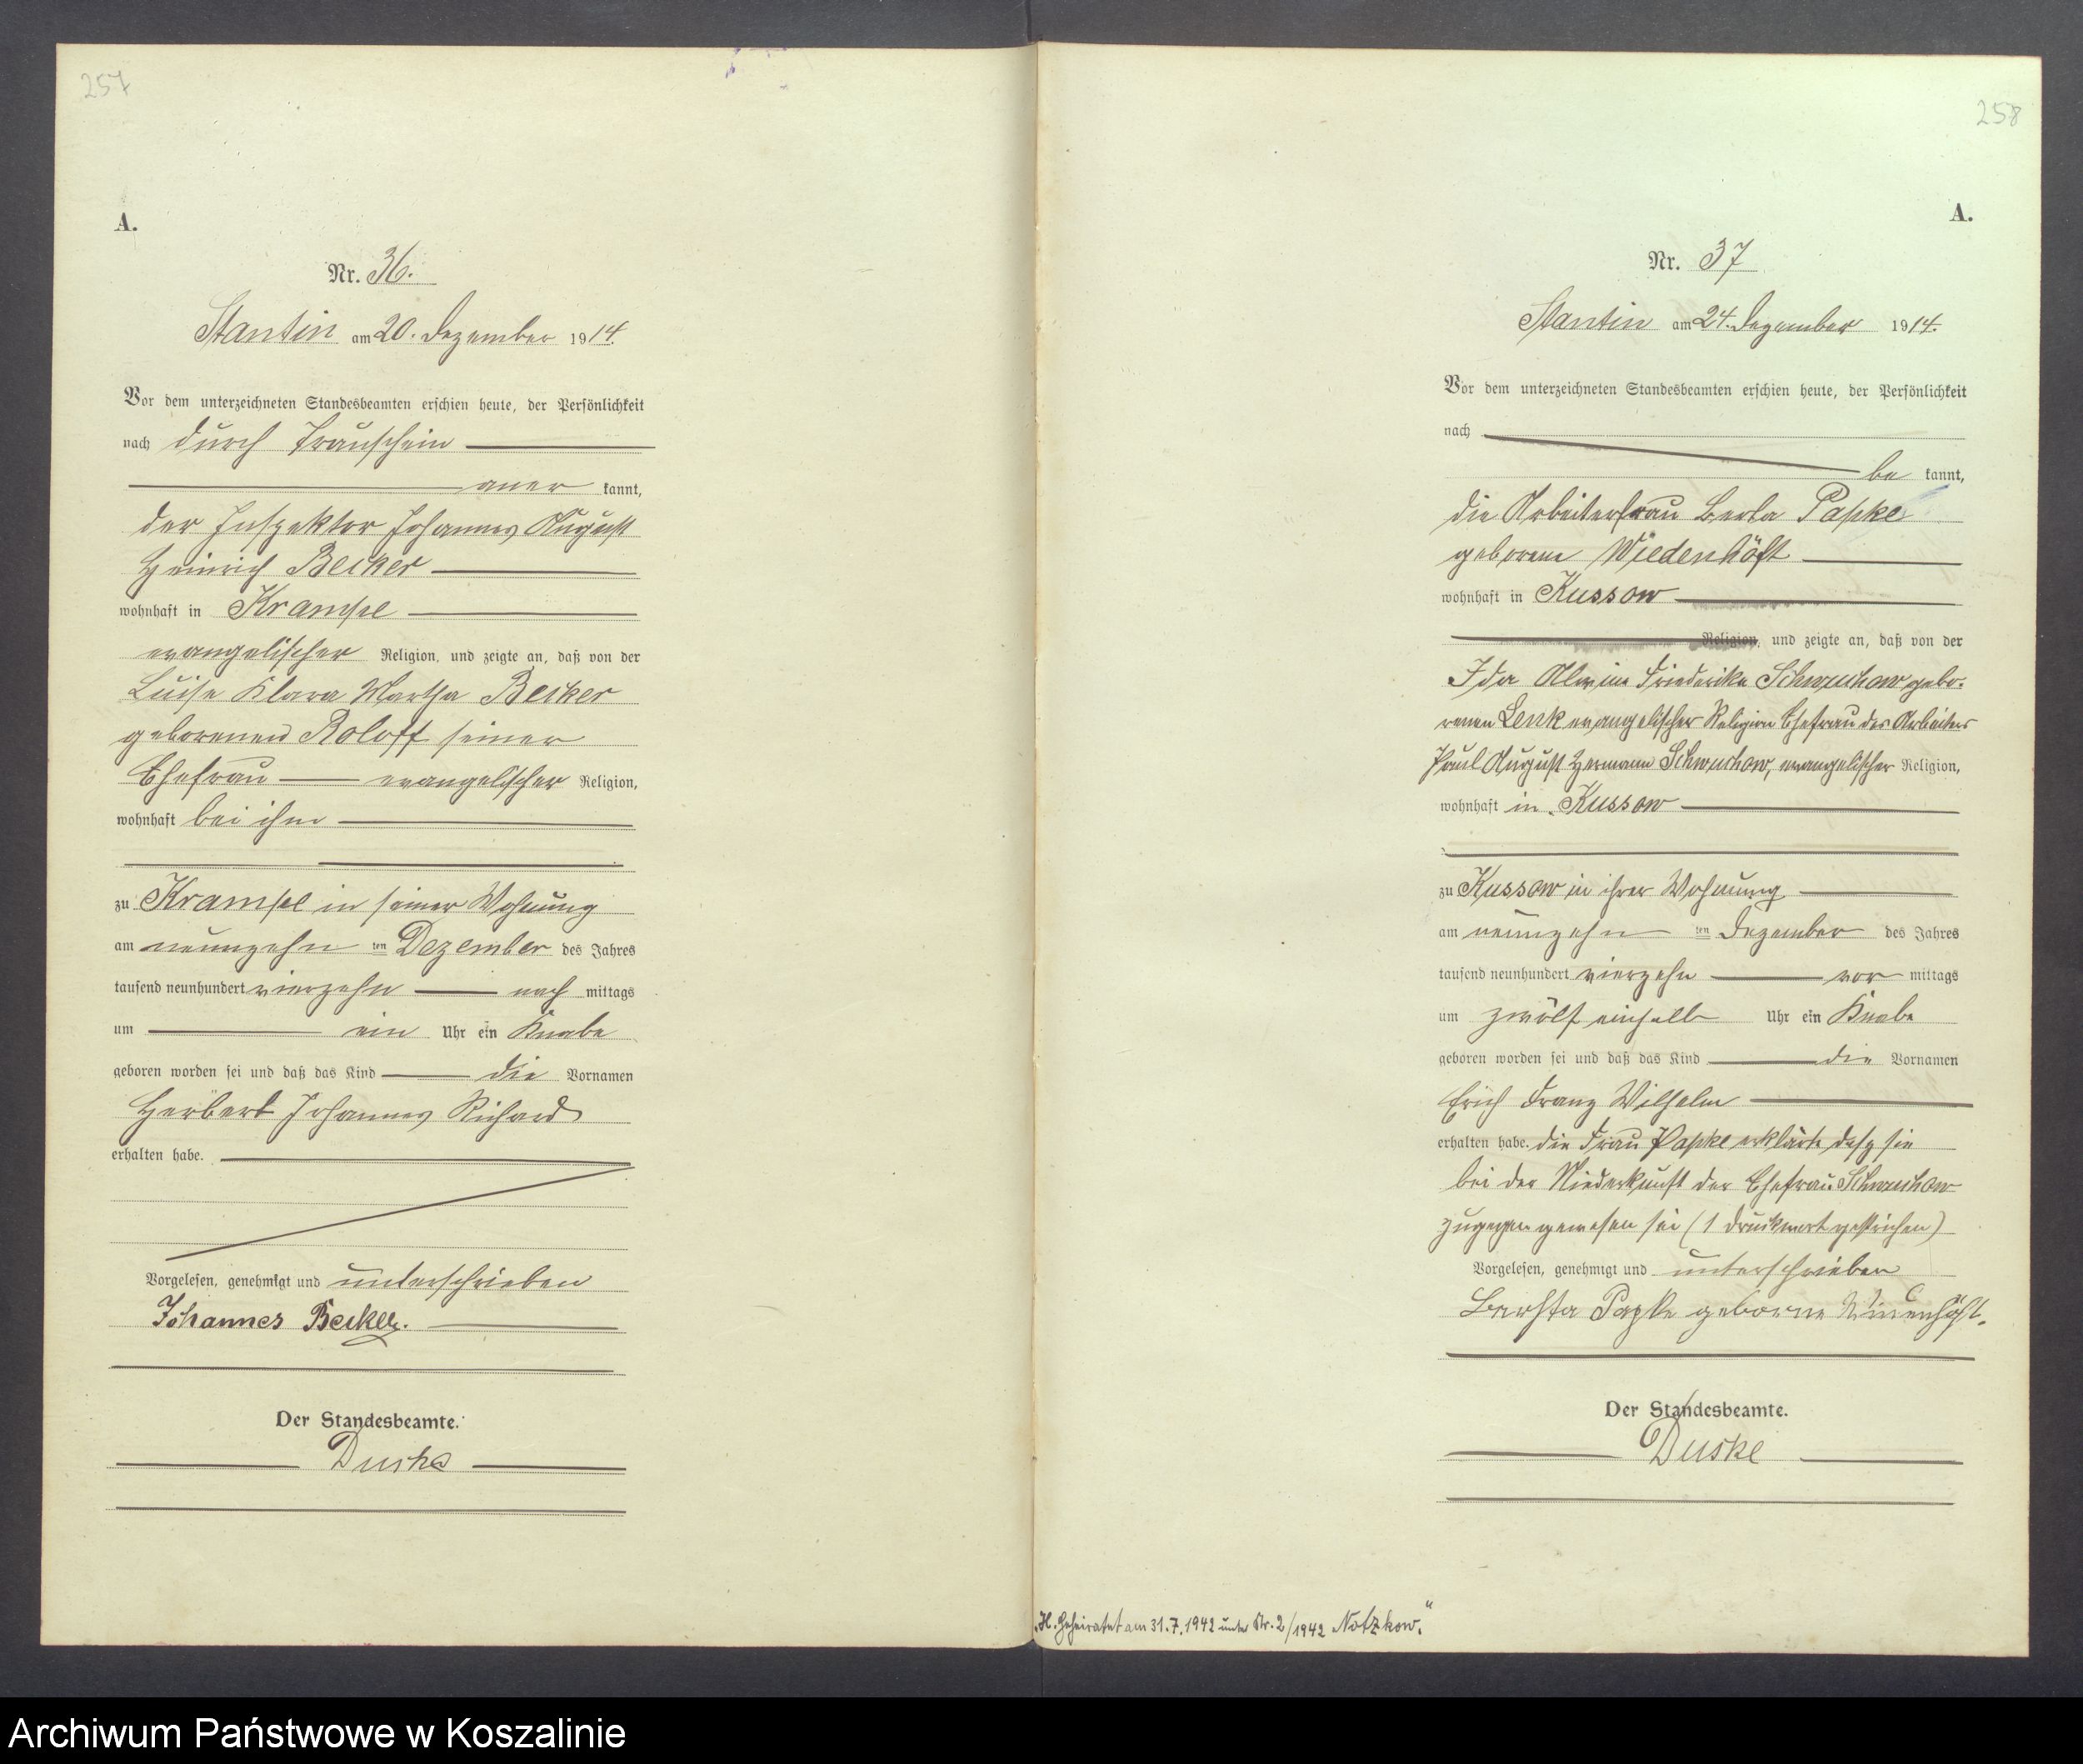 257
A.
Nr. 36.
Stantin am 20. Dezember 1914.
Vor dem unterzeichneten Standesbeamten erschien heute, der Persönlichkeit
nach durch Trauschein
aner kannt,
der Inspektor Johannes August
Heinrich Becker
wohnhaft in Krampe
evangelischer Religion, und zeigte an, daß von der
Luise Klara Martha Becker
geborenen Roloff seiner
Ehefrau evangelischer Religion,
wohnhaft bei ihm
zu Krampe in seiner Wohnung
am neunzehn ten Dezember des Jahres
tausend neunhundert vierzehn nach mittags
um ein Uhr ein Knabe
geboren worden sei und daß das Kind die Vornamen
Herbert Johannes Richard
erhalten habe.
Vorgelesen, genehmigt und unterschrieben
Johannes Becker.
Der Standesbeamte.
Duske
258
A.
Nr. 37
Stantin am 24. Dezember 1914.
Vor dem unterzeichneten Standesbeamten erschien heute, der Persönlichkeit
nach
be kannt,
die Arbeiterfrau Berta Papke
geborene Wiedenhöft
wohnhaft in Kussow
Religion, und zeigte an, daß von der
Ida Alwine Friederike Schwuchow gebo-
renen Lenk evangelischer Religion Ehefrau des Arbeiters
Paul August Hermann Schwuchow, evangelischer Religion,
wohnhaft in Kussow
zu Kussow in ihrer Wohnung
am neunzehn ten Dezember des Jahres
tausend neunhundert vierzehn vor mittags
um zwölf einhalb Uhr ein Knabe
geboren worden sei und daß das Kind die Vornamen
Erich Franz Wilhelm
erhalten habe. die Frau Papke erklärte daß sie
bei der Niederkunft der Ehefrau Schwuchow
zugegen gewesen sei (1 Druckwort gestrichen)
Vorgelesen, genehmigt und unterschrieben
Bershta Papke geborne
Der Standesbeamte.
Duske
„H. Geheiratet am 31.7.1942 unter Nr. 2/1942 Notzkow."
Archiwum Państwowe w Koszalinie